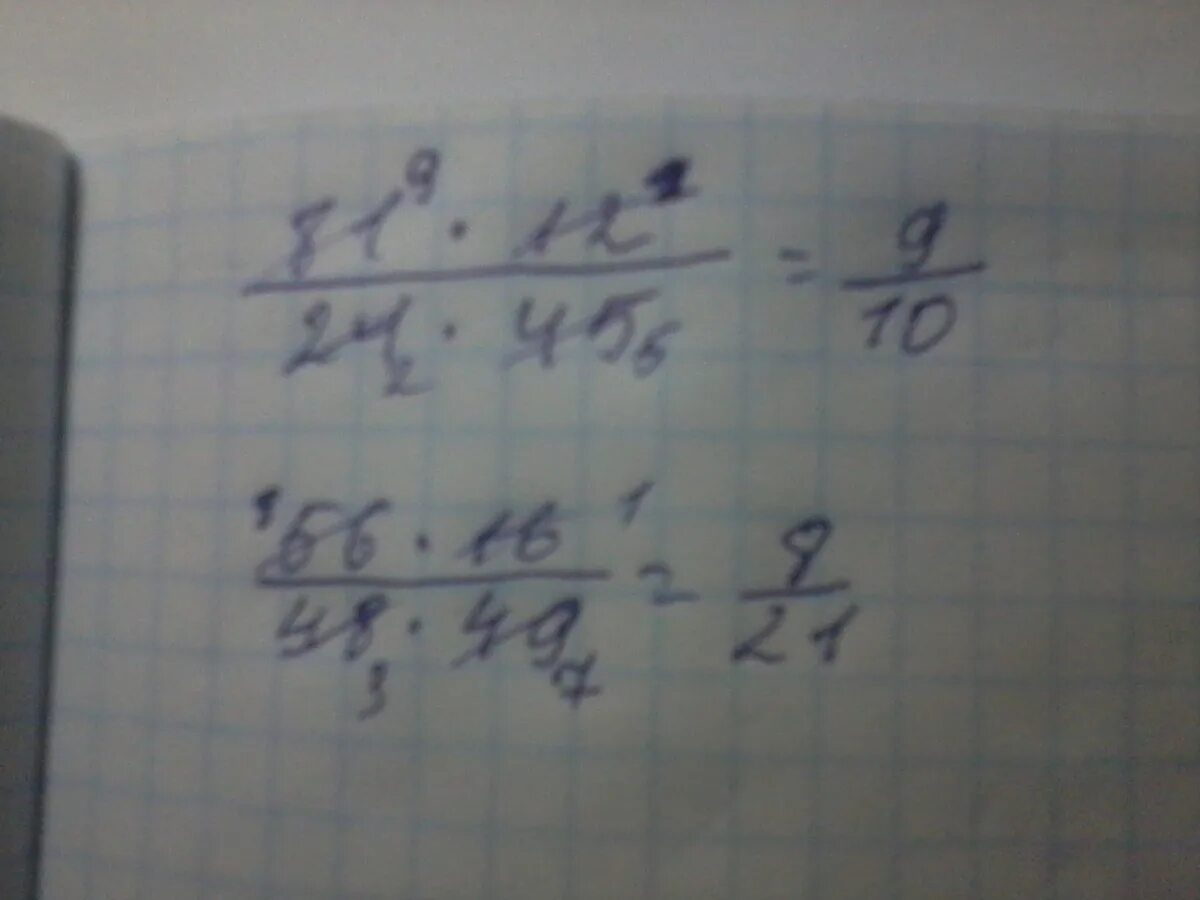 81⁹ · 12¹ = 9
24₂ · 45₅ 10
⁸56 · 16¹ = 8
48₃ · 49₇ 21